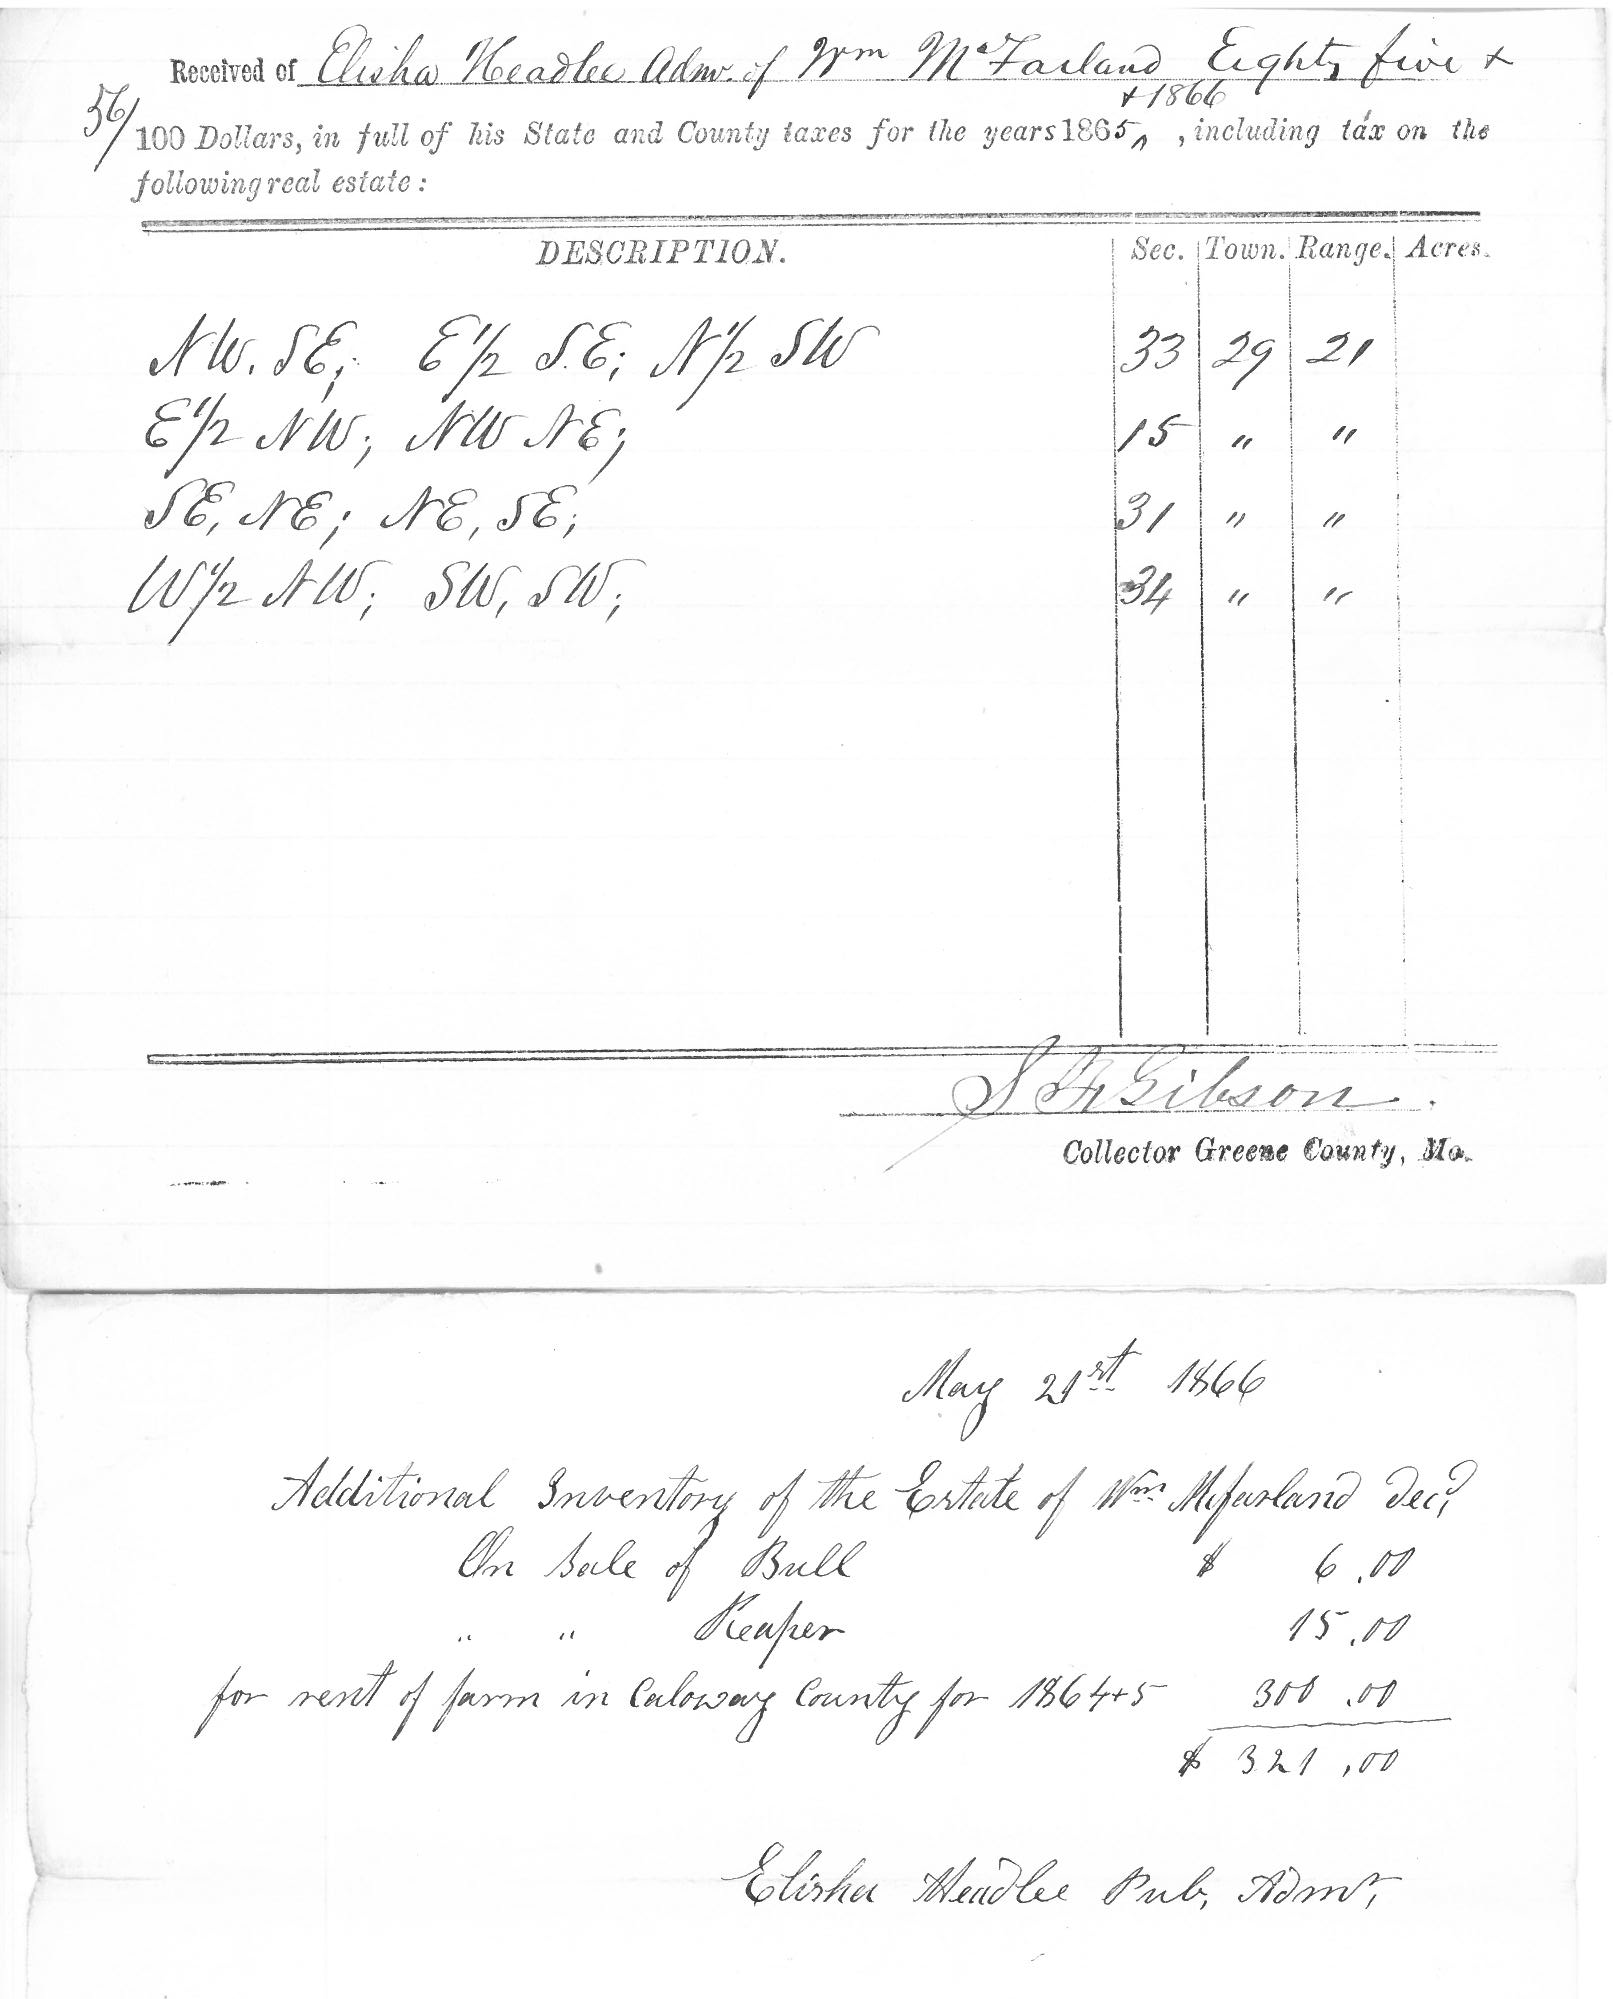 Received of Elisha Headlee Admr. of Wm McFarland Eighty five +
+ 1866
56/100 Dollars, in full of his State and County taxes for the years 1865‸ , including tax on the
following real estate:
DESCRIPTION. Sec. Town. Range. Acres.
NW. SE; E 1/2 S.E; N 1/2 SW 33 29 21
E 1/2 NW; NW NE; 15 " "
SE, NE; NE, SE; 31 " "
W 1/2 NW; SW, SW; 34 " "
Gibson.
Collector Greene County, Mo.
May 21st 1866
Additional Inventory of the Estate of Wm Mcfarland Decd,
On Sale of Bull $ 6.00
" " Reaper 15.00
for rent of farm in Caloway County for 1864+5 300.00
$ 321.00
Elisha Headlee Pub, Admr,